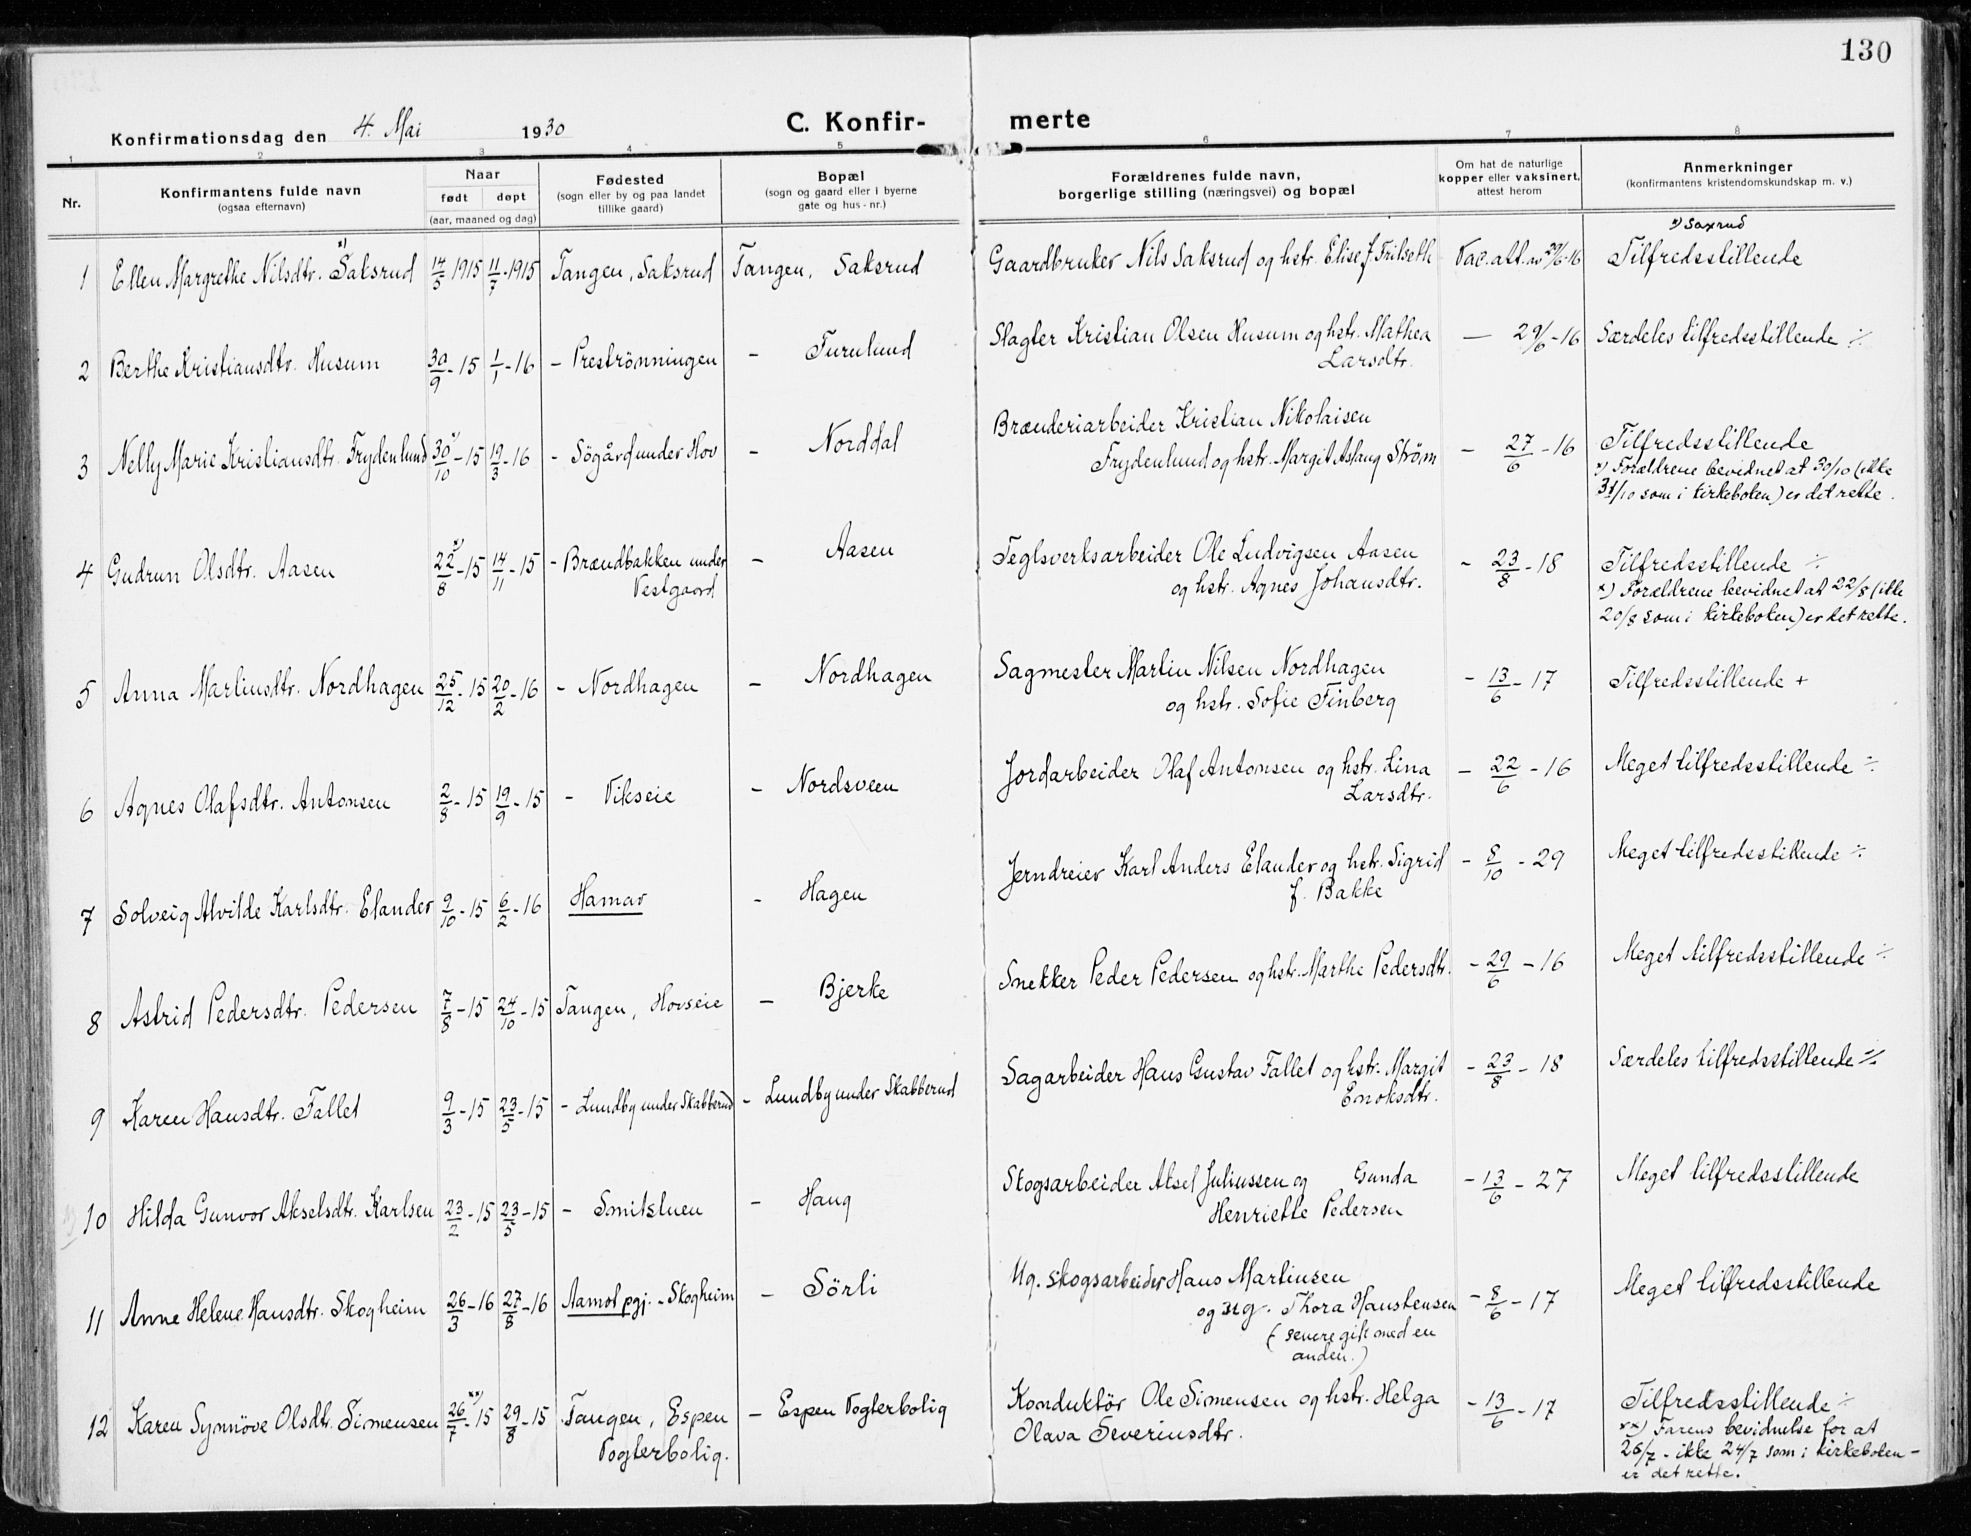 130
Konfirmationsdag den 4. Mai 1930 C. Konfir- merte
1 2 3 4 5 6 7 8
Nr.
Konfirmantens fulde navn
(ogsaa efternavn)
Naar
født døpt
(aar, maaned og dag)
Fødested
(sogn eller by og paa landet
tillike gaard)
Bopæl
(sogn og gaard eller i byerne
gate og hus - nr.)
Forældrenes fulde navn,
borgerlige stilling (næringsvei) og bopæl
Om hat de naturlige
kopper eller vaksinert,
attest herom
Anmerkninger
(konfirmantens kristendomskundskap m. v.)
x) Saxrud
1 Ellen Margrethe Nilsdtr. Saksrud x) 14/5 1915 11/7-1915 Tangen, Saksrud Tangen, Saksrud Gaardbruker Nils Saksrud og hstr. Elise f Frilseth Vac. att. av 29/6-16 Tilfredsstillende
2 Berthe Kristiansdtr. Husum 30/9-15 1/1-16 - Preströnningen - Furulund Slagter Kristian Olsen Husum og hstr. Mathea
Larsdtr. — 29/6-16 Særdeles tilfredsstillende ÷
3 Nelly Marie Kristiansdtr. Frydenlund 30/10 x)-15 19/3-16 - Sögård under Hov - Norddal Brænderiarbeider Kristian Nikolaisen
Frydenlund og hstr. Margit Aslaug Strøm - 27/6-16 Tilfredsstillende
x) Forældrene bevidnet at 30/10 (ikke
31/10 som i kirkeboken) er det rette.
4 Gudrun Olsdtr. Aasen 22/8 x)-15 14/11-15 - Brændbakken under
Vestgaard - Aasen Teglsverksarbeider Ole Ludvigsen Aasen
og hstr. Agnes Johansdtr. - 23/8-18 Tilfredsstillende ÷
x) Forældrene bevidnet at 22/8 (ikke
20/8 som i kirkeboken) er det rette.
5 Anna Martinsdtr. Nordhagen 25/12-15 20/2-16 - Nordhagen - Nordhagen Sagmester Martin Nilsen Nordhagen
og hstr. Sofie Finberg - 13/6-17 Tilfredsstillende +
6 Agnes Olafsdtr. Antonsen 2/8-15 19/9-15 - Vikseie - Nordsveen Jordarbeider Olaf Antonsen og hstr. Lina
Larsdtr. - 22/6-16 Meget tilfredsstillende ÷
7 Solveig Alvilde Karlsdtr. Elander 9/10-15 6/2-16 Hamar - Hagen Jerndreier Karl Anders Elander og hstr. Sigrid
f. Bakke - 8/10-29 Meget tilfredsstillende ÷
8 Astrid Pedersdtr. Pedersen 7/8-15 24/10-15 Tangen, Hovseie - Bjerke Snekker Peder Pedersen og hstr. Marthe Pedersdtr. - 29/6-16 Meget tilfredsstillende ÷
9 Karen Hansdtr. Fallet 9/3-15 23/5-15 - Lundby under Skabberud - Lundby under Skabberud Sagarbeider Hans Gustav Fallet og hstr. Margit
Enoksdtr. - 23/8-18 Særdeles tilfredsstillende ÷
10 Hilda Gunvor Akselsdtr. Karlsen 23/2-15 23/5-15 - Smitsluen - Haug Skogsarbeider Aksel Juliussen og Gunda
Henriette Pedersen - 13/6-27 Meget tilfredsstillende
11 Anne Helene Hansdtr. Skogheim 26/3-16 27/8-16 Aamot pgj. - Skogheim - Sörli Ug. skogsarbeider Hans Martinsen
og ug. Thora Haustensen
(senere gift med en
anden.) - 8/6-17 Meget tilfredsstillende
12 Karen Synnöve Olsdtr. Simensen 26/7 xx)-15 29/8-15 Tangen, Espen
Vogterbolig. - Espen Vogterbolig Konduktör Ole Simensen og hstr. Helga
Olava Severinsdtr. - 13/6-17 Tilfredsstillende ÷
xx) Farens bevidnelse for at
26/7 - ikke 24/7 som i kirkeboken -
er det rette.